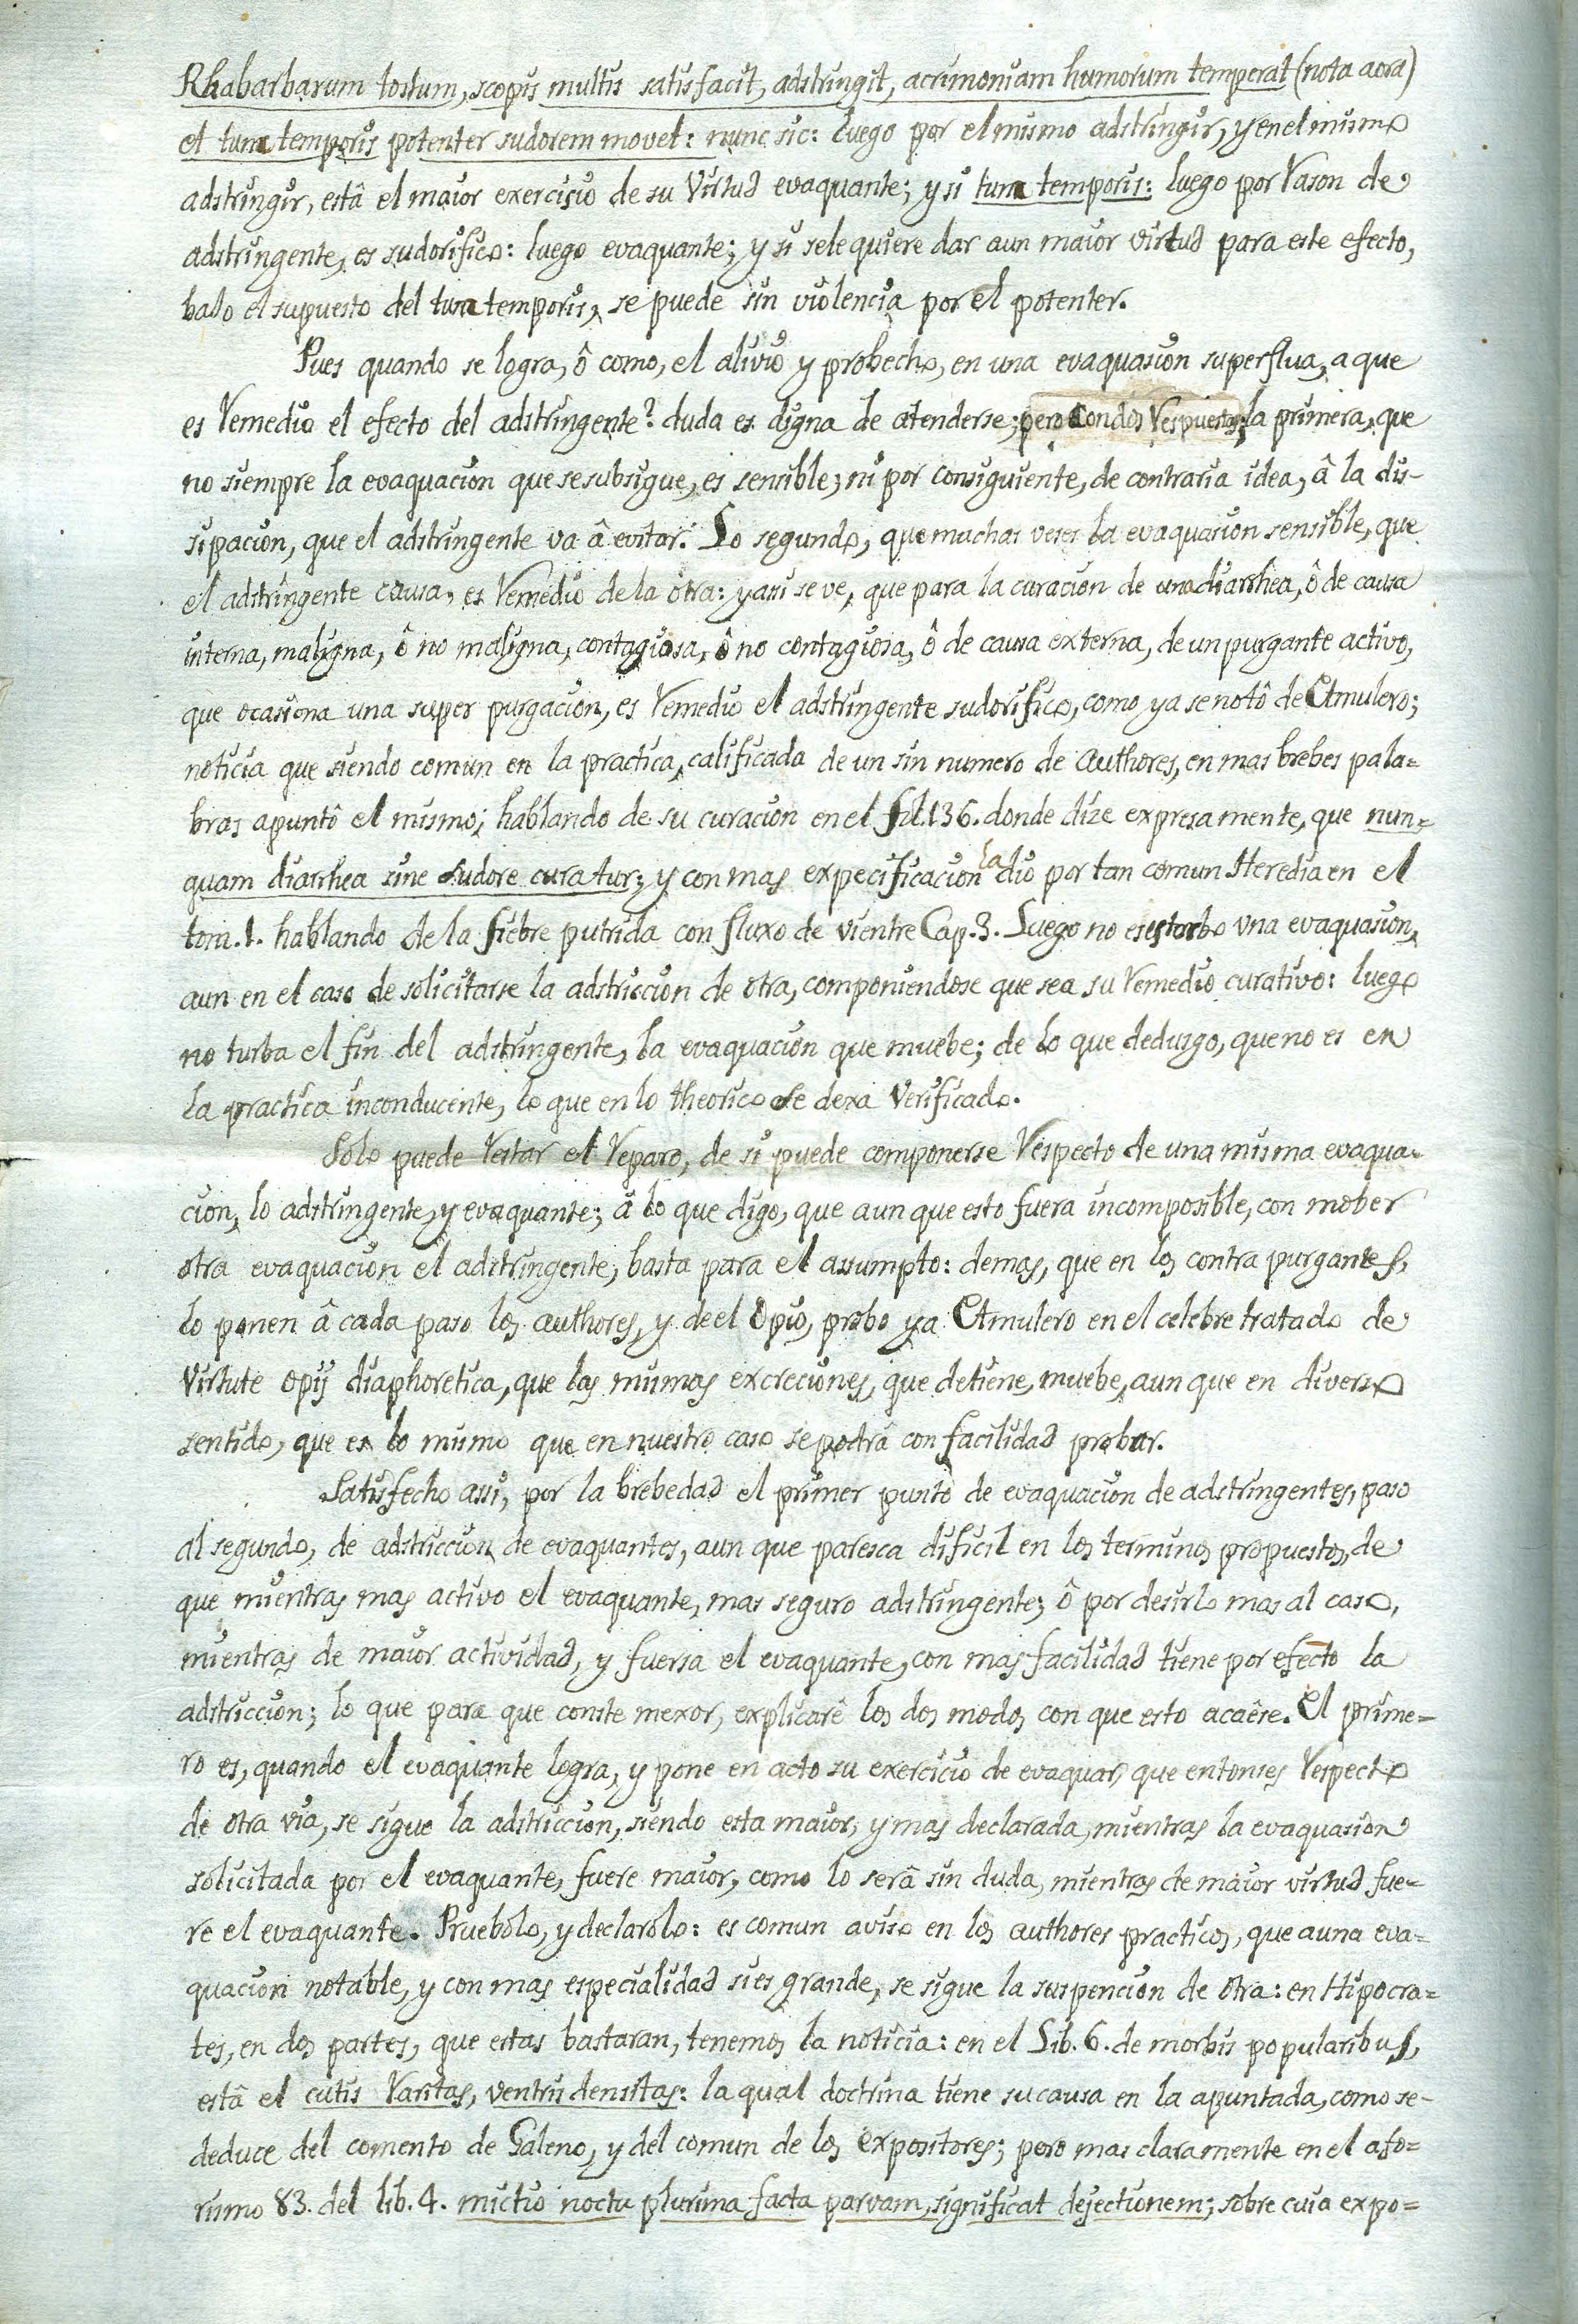 Rhabarbarum tostum, scopis multis satisfacit, adstringit, acrimoniam humorum temperat (nota aora)
et tunc temporis potenter sudorem movet: nunc sic: luego por el mismo adstringir, y en el mismo
adstringir, està el maior exercisio de su Virtud evaquante; y si tunc temporis: luego por rason de
adstringente, es sudorifico: luego evaquante; y si se le quiere dar aun maior virtud para este efecto,
bajo el supuesto del tunc temporis, se puede sin violencia por el potenter.
Pues quando se logra, ô como, el alivio y probecho, en una evaquasion superflua, a que
es remedio el efecto del adstringente? duda es digna de atenderse; pero con dos respuestas; la primera, que
no siempre la evaquacion que se subsigue, es sensible; ni por consiguiente, de contraria idea, â la dis-
sipacion, que el adstringente va â evitar. Lo segundo, que muchas veses la evaquasion sensible, que
el adstringente causa, es remedio de la otra: y assi se ve, que para la curacion de una diarrhea, ô de causa
interna, maligna, ô no maligna, contagiosa, ô no contagiosa, ô de causa externa, de un purgante activo,
que ocasiona una super purgacion, es remedio el adstringente sudorifico, como ya se notô de Etmulero;
noticia que siendo comun en la practica, calificada de un sin numero de Authores, en mas brebes pala=
bras apuntô el mismo; hablando de su curacion en el fol. 136. donde dize expresamente, que nun=
quam diarrhea sine sudore curatur; y con mas expecificacion la dio por tan comun Heredia en el
tom. 1. hablando de la fiebre putrida con fluxo de vientre Cap. 3. Luego no es estorbo una evaquasion,
aun en el caso de solicitarse la adstriccion de otra, componiendose que sea su remedio curativo: luego
no turba el fin del adstringente, la evaquacion que muebe; de lo que dedusgo, que no es en
la practica inconducente, lo que en lo theorico se dexa verificado.
Solo puede restar el reparo, de si puede componerse respecto de una misma evaqua-
cion, lo adstringente, y evaquante; â lo que digo, que aun que esto fuera incomposible, con mober
otra evaquacion el adstringente, basta para el assumpto: demas, que en los contra purgantes,
lo ponen â cada paso los authores, y de el Opio, probo ya Etmulero en el celebre tratado de
Virtute opij diaphoretica, que las mismas excreciones, que detiene, muebe, aun que en diverso
sentido, que es lo mismo que en nuestro caso se podrâ con facilidad probar.
Satisfecho assi, por la brebedad el primer punto de evaquacion de adstringentes, paso
al segundo, de adstriccion de evaquantes, aun que paresca dificil en los terminos propuestos, de
que mientras mas activo el evaquante, mas seguro adstringente; ô por desirlo mas al caso,
mientras de maior actividad, y fuersa el evaquante, con mas facilidad tiene por efecto la
adstriccion; lo que para que conste mexor, explicarê los dos modos con que esto acaêse. El prime=
ro es, quando el evaquante logra, y pone en acto su exercicio de evaquar, que entonses respecto
de otra via, se sigue la adstriccion, siendo esta maior, y mas declarada, mientras la evaquasion
solicitada por el evaquante, fuere maior, como lo serâ sin duda, mientras de maior virtud fue=
re el evaquante. Pruebolo, y declarolo: es comun aviso en los authores practicos, que a una eva=
quacion notable, y con mas especialidad si es grande, se sigue la suspencion de otra: en Hipocra=
tes, en dos partes, que estas bastaran, tenemos la noticia: en el Lib. 6. de morbis popularibus,
estâ el cutis raritas, ventris densitas: la qual doctrina tiene su causa en la apuntada, como se-
deduce del comento de Galeno, y del comun de los Expositores; pero mas claramente en el afo=
rismo 83. del lib. 4. mictio noctu plurima facta parvam significat dejectionem; sobre cuia expo=